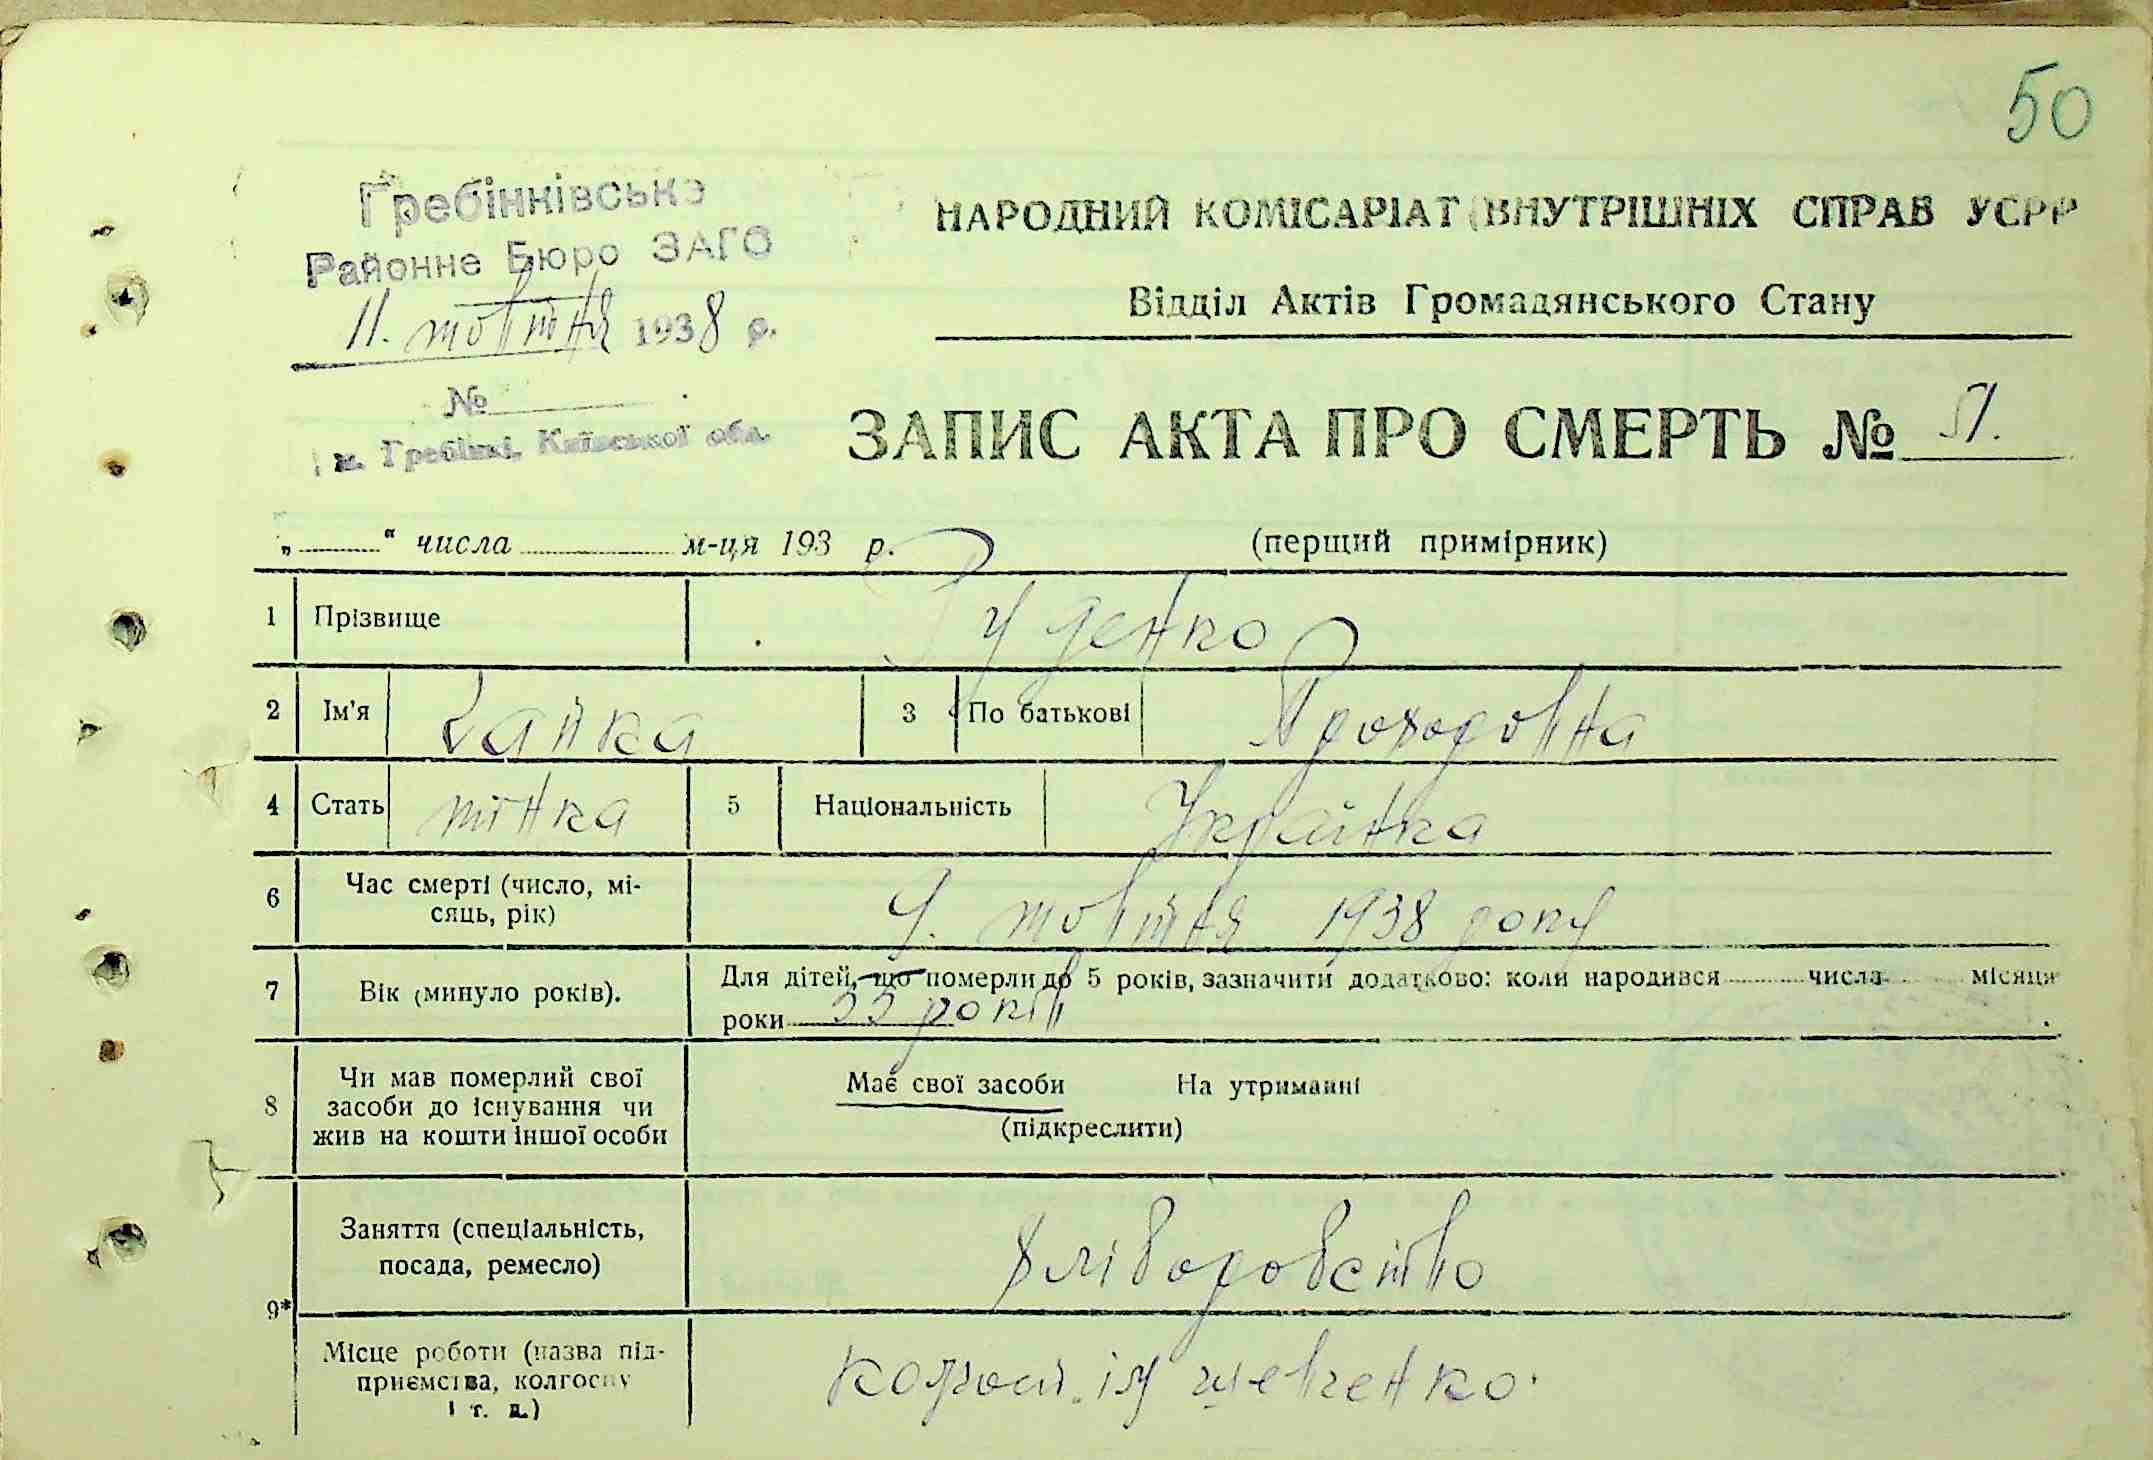 50
Гребінківське
Районне Бюро ЗАГС
11. жовтня 1938 р.
№
м. Гребінкі, Київської обл.
НАРОДНИЙ КОМІСАРІАТ ВНУТРІШНІХ СПРАВ УСРР
Відділ Актів Громадянського Стану
ЗАПИС АКТА ПРО СМЕРТЬ № 51.
„ “ числа м-ця 193 р. (перщий примірник)
1 Прізвище Руденко
2 Ім'я 3 По батькові Прохоровна
4 Стать жінка 5 Національність Украінка
6 Час смерті (число, мі-
сяць, рік) 9. жовтня 1938 року
7 Вік (минуло років). Для дітей, що померли до 5 років, зазначити додатково: коли народився числа місяця
роки 33 років
8 Чи мав померлий свої
засоби до існування чи
жив на кошти іншої особи
Має свої засоби На утриманні
(підкреслити)
9* Заняття (спеціальність,
посада, ремесло) Хліборобство
Місце роботи (назва під-
приємства, колгоспу
і т. д.)
колгосп. ім шевченко.